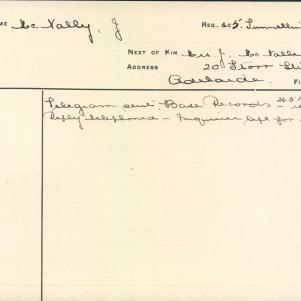 ME McNally, J
REG. &C 5. Tunnellin
NEXT OF KIN Mrs. J. McNalle
ADDRESS 20 Storr St
Adelaide.
Telegram sent: Base Records - 24.5
Reply telephoned - Inquirer left for